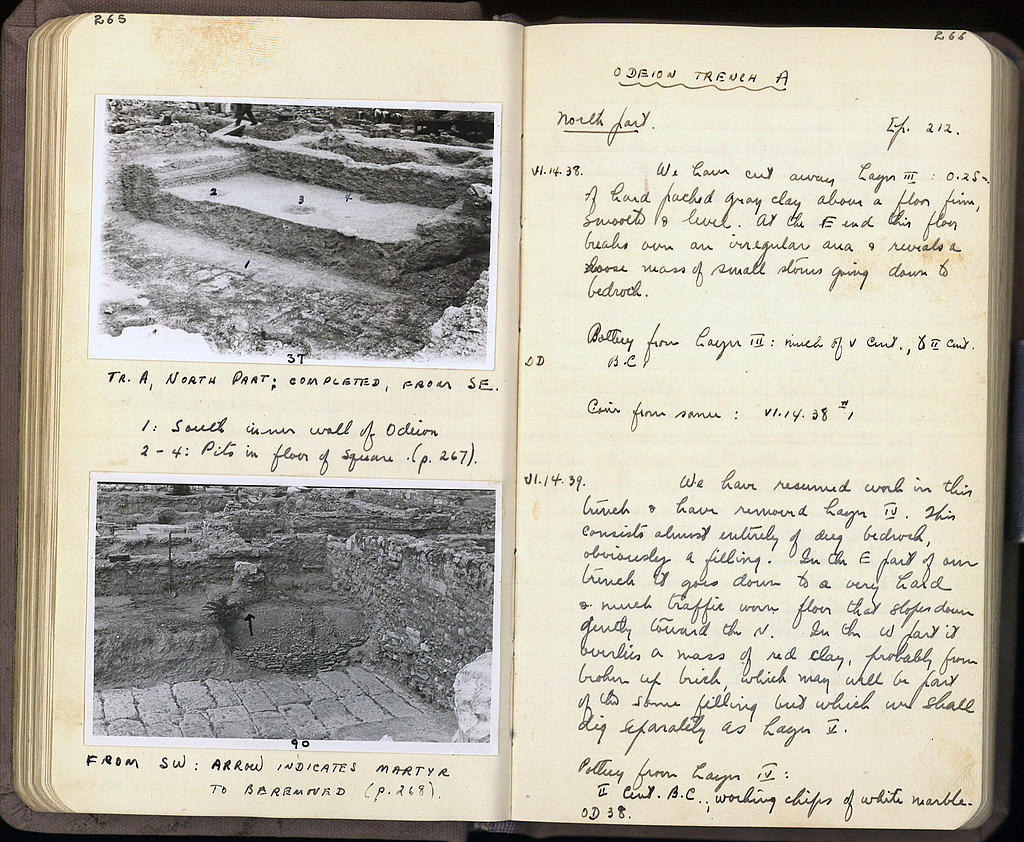 265
2
3
4
1
37
TR. A, NORTH PART; COMPLETED, FROM SE.
1: South inner wall of Odeion
2-4: Pits in floor of Square (p. 267).
90
FROM SW: ARROW INDICATES MARTYR
TO BE REMOVED (p. 268).
266
ODEION TRENCH A
North part.
212.
VI.14.38. We have cut away Layer III: 0.25
of hard packed gray clay above a floor firm,
smooth & level. At the E end this floor
breaks over an irregular area & reveals a
loose mass of small stones going down to
bedrock.
Pottery from Layer III: much of V cent., to II cent.
B.C.
Coin from same: VI.14.38 #1
VI.14.39. We have resumed work in this
trench & have removed Layer IV. This
consists almost entirely of dug bedrock,
obviously a filling. In the E part of our
trench it goes down to a very hard
& much traffic worn floor that slopes down
gently toward the N. In the W part it
overlies a mass of red clay, probably from
broken up brick, which may well be part
of the same filling but which we shall
dig separately as Layer V.
Pottery from Layer IV:
II Cent. B.C.; working chips of white marble.
OD 38.